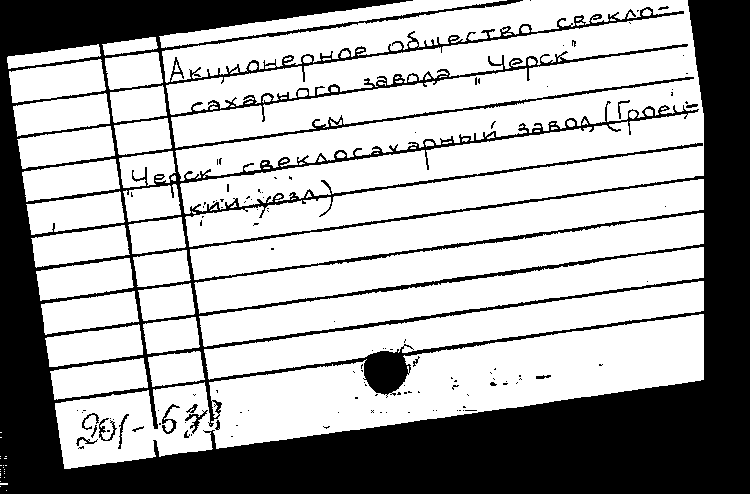 Акционерное общество свекло-
сахарного завода „Черск"
см
„Черск" свеклосахарный завод (Гроец-
кий уезд)
201-633